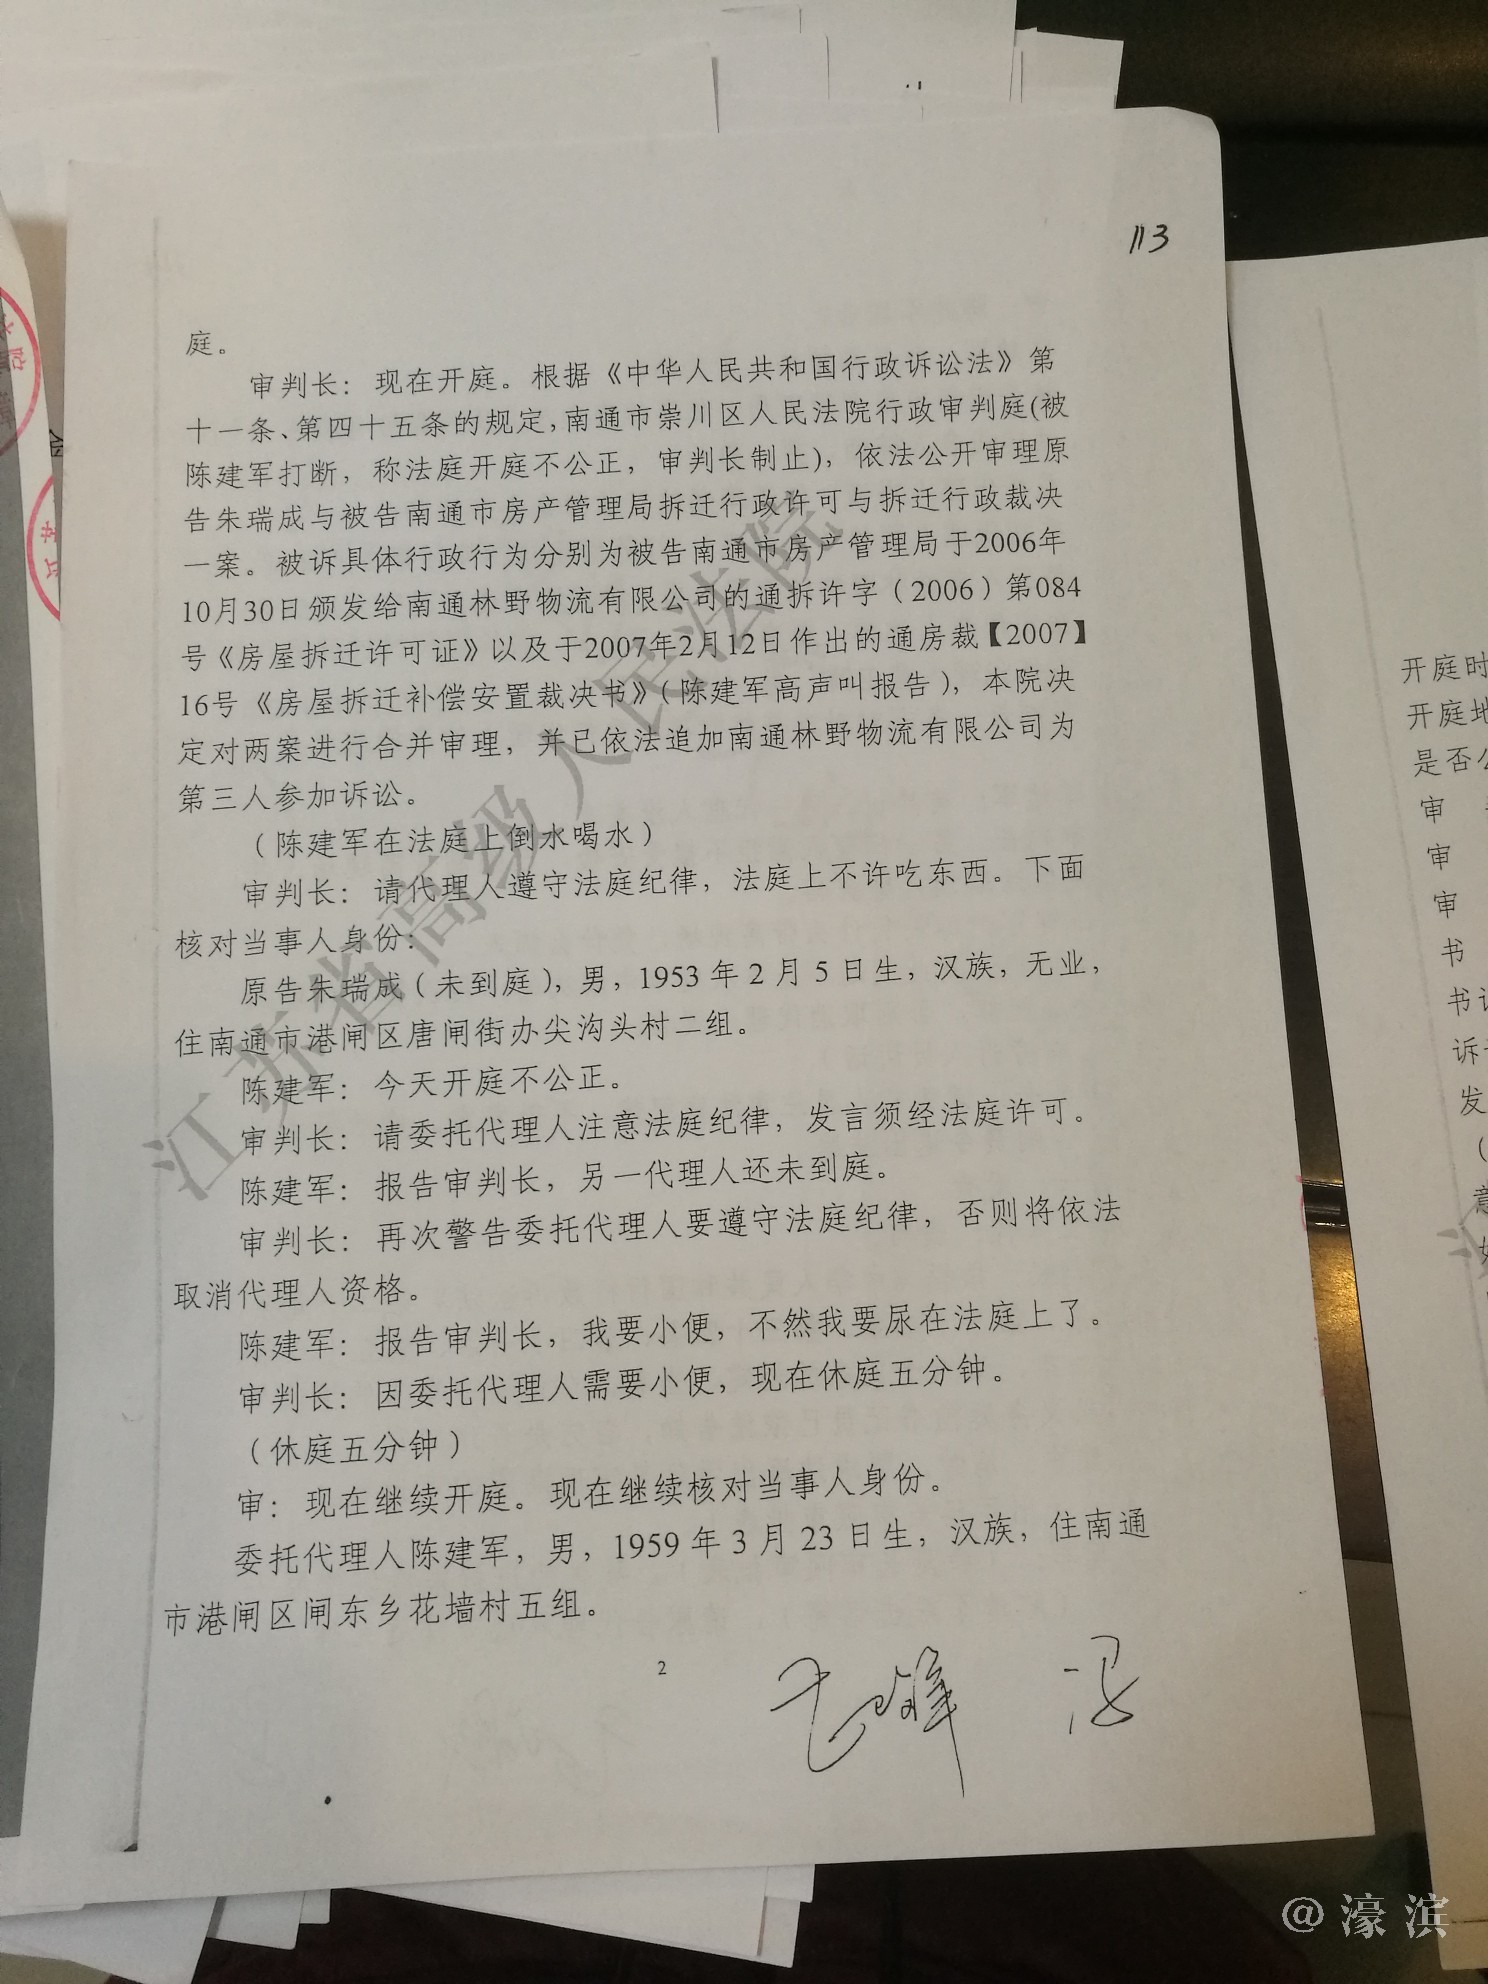 113
庭。
审判长：现在开庭。根据《中华人民共和国行政诉讼法》第
十一条、第四十五条的规定，南通市崇川区人民法院行政审判庭(被
陈建军打断，称法庭开庭不公正，审判长制止)，依法公开审理原
告朱瑞成与被告南通市房产管理局拆迁行政许可与拆迁行政裁决
一案。被诉具体行政行为分别为被告南通市房产管理局于2006年
10月30日颁发给南通林野物流有限公司的通拆许字（2006）第084
号《房屋拆迁许可证》以及于2007年2月12日作出的通房裁【2007】
16号《房屋拆迁补偿安置裁决书》（陈建军高声叫报告），本院决
定对两案进行合并审理，并已依法追加南通林野物流有限公司为
第三人参加诉讼。
（陈建军在法庭上倒水喝水）
审判长：请代理人遵守法庭纪律，法庭上不许吃东西。下面
核对当事人身份：
原告朱瑞成（未到庭），男，1953年2月5日生，汉族，无业，
住南通市港闸区唐闸街办尖沟头村二组。
陈建军：今天开庭不公正。
审判长：请委托代理人注意法庭纪律，发言须经法庭许可。
陈建军：报告审判长，另一代理人还未到庭。
审判长：再次警告委托代理人要遵守法庭纪律，否则将依法
取消代理人资格。
陈建军：报告审判长，我要小便，不然我要尿在法庭上了。
审判长：因委托代理人需要小便，现在休庭五分钟。
（休庭五分钟）
审：现在继续开庭。现在继续核对当事人身份。
委托代理人陈建军，男，1959年3月23日生，汉族，住南通
市港闸区闸东乡花墙村五组。
2
江苏省高级人民法院
开庭时
开庭地
是否公
审
审
审
书
书记
诉讼
发
（
意
@濠滨